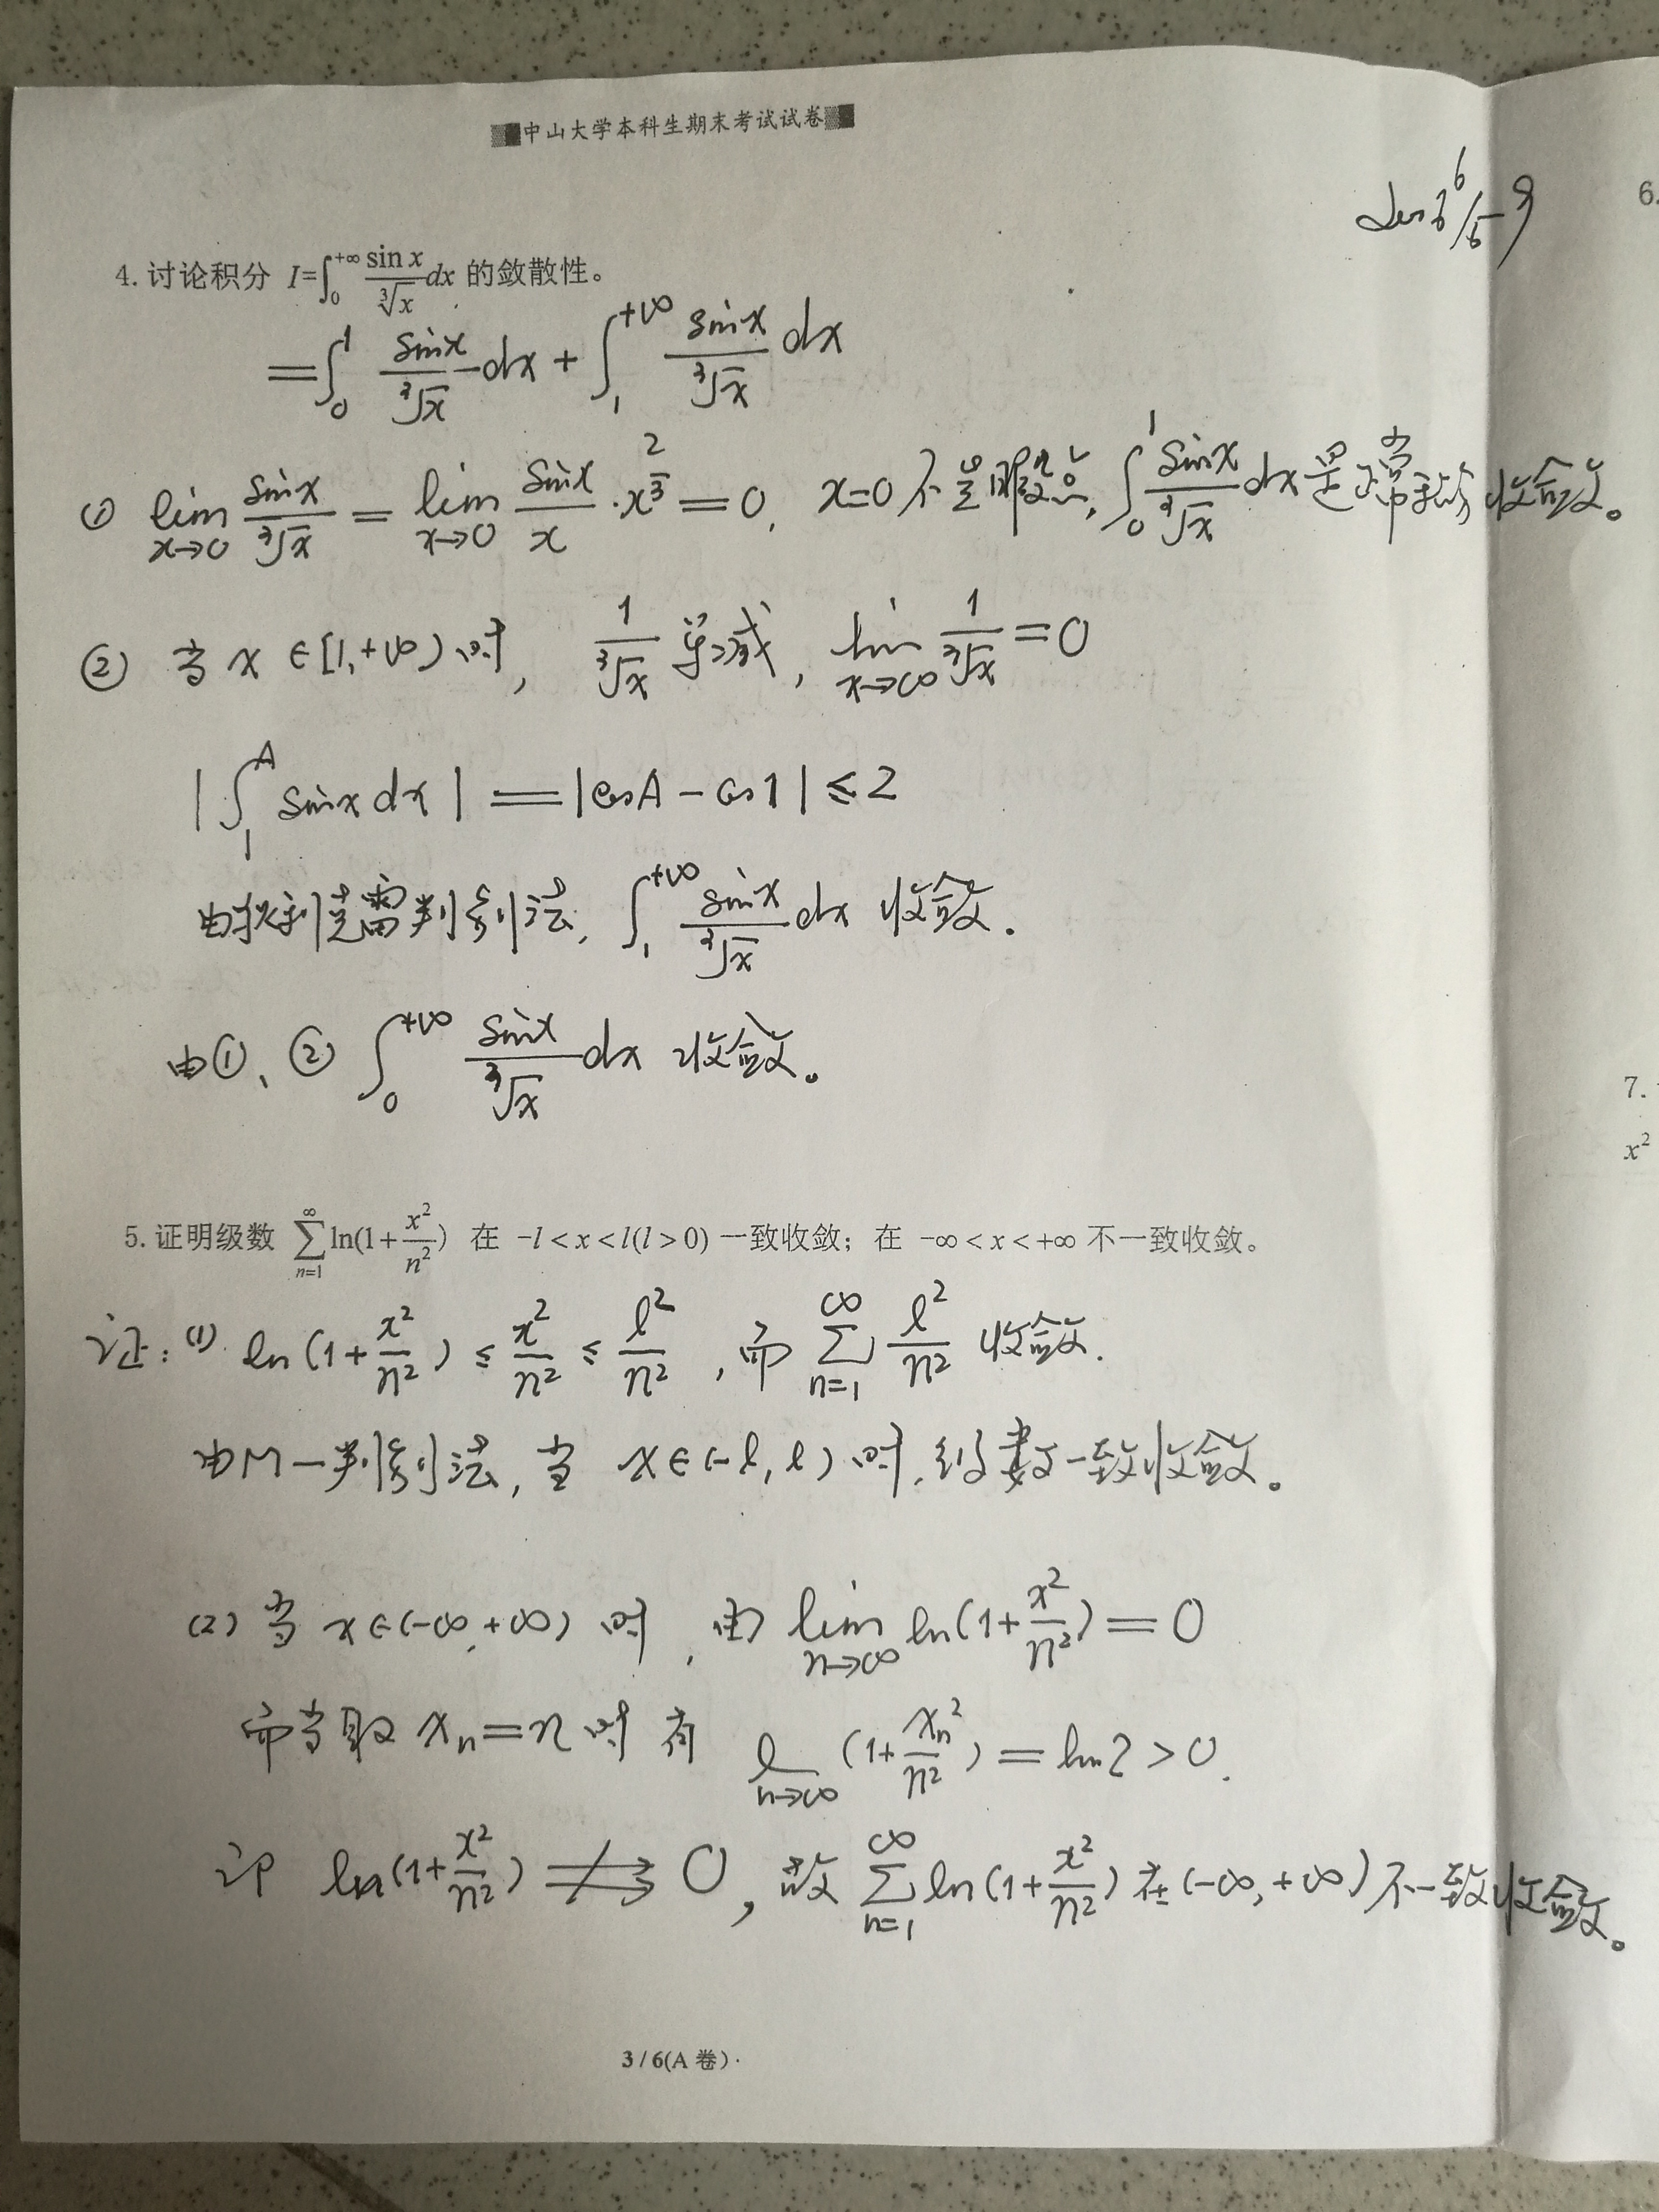 中山大学本科生期末考试试卷
6.
4. 讨论积分 I=∫₀^{+∞} sin x/∛x dx 的敛散性。
=∫₀¹ sinx/∛x dx + ∫₁^{+∞} sinx/∛x dx
① lim_{x→0} sinx/∛x = lim_{x→0} sinx/x · x^{2/3} = 0, x=0不是瑕点, ∫₀¹ sinx/∛x dx 是正常积分 收敛。
② 当 x∈[1,+∞) 时, 1/∛x 单减, lim_{x→∞} 1/∛x = 0
|∫₁^A sinx dx| = |cosA - cos1| ≤ 2
由狄利克雷判别法, ∫₁^{+∞} sinx/∛x dx 收敛.
由①、② ∫₀^{+∞} sinx/∛x dx 收敛。
7.
x²
5. 证明级数 ∑_{n=1}^{∞} ln(1+x²/n²) 在 -l<x<l(l>0) 一致收敛; 在 -∞<x<+∞ 不一致收敛。
证: (1) ln(1+x²/n²) ≤ x²/n² ≤ l²/n², 而 ∑_{n=1}^{∞} l²/n² 收敛.
由M-判别法, 当 x∈(-l, l) 时, 级数一致收敛。
(2) 当 x∈(-∞,+∞) 时, 由 lim_{n→∞} ln(1+x²/n²) = 0
而当取 xₙ=n 时 有 l_{n→∞} (1+xₙ²/n²) = ln2 > 0.
即 ln(1+x²/n²) ⇉̸ 0, 故 ∑_{n=1}^{∞} ln(1+x²/n²) 在 (-∞,+∞) 不一致收敛。
3 / 6(A 卷)